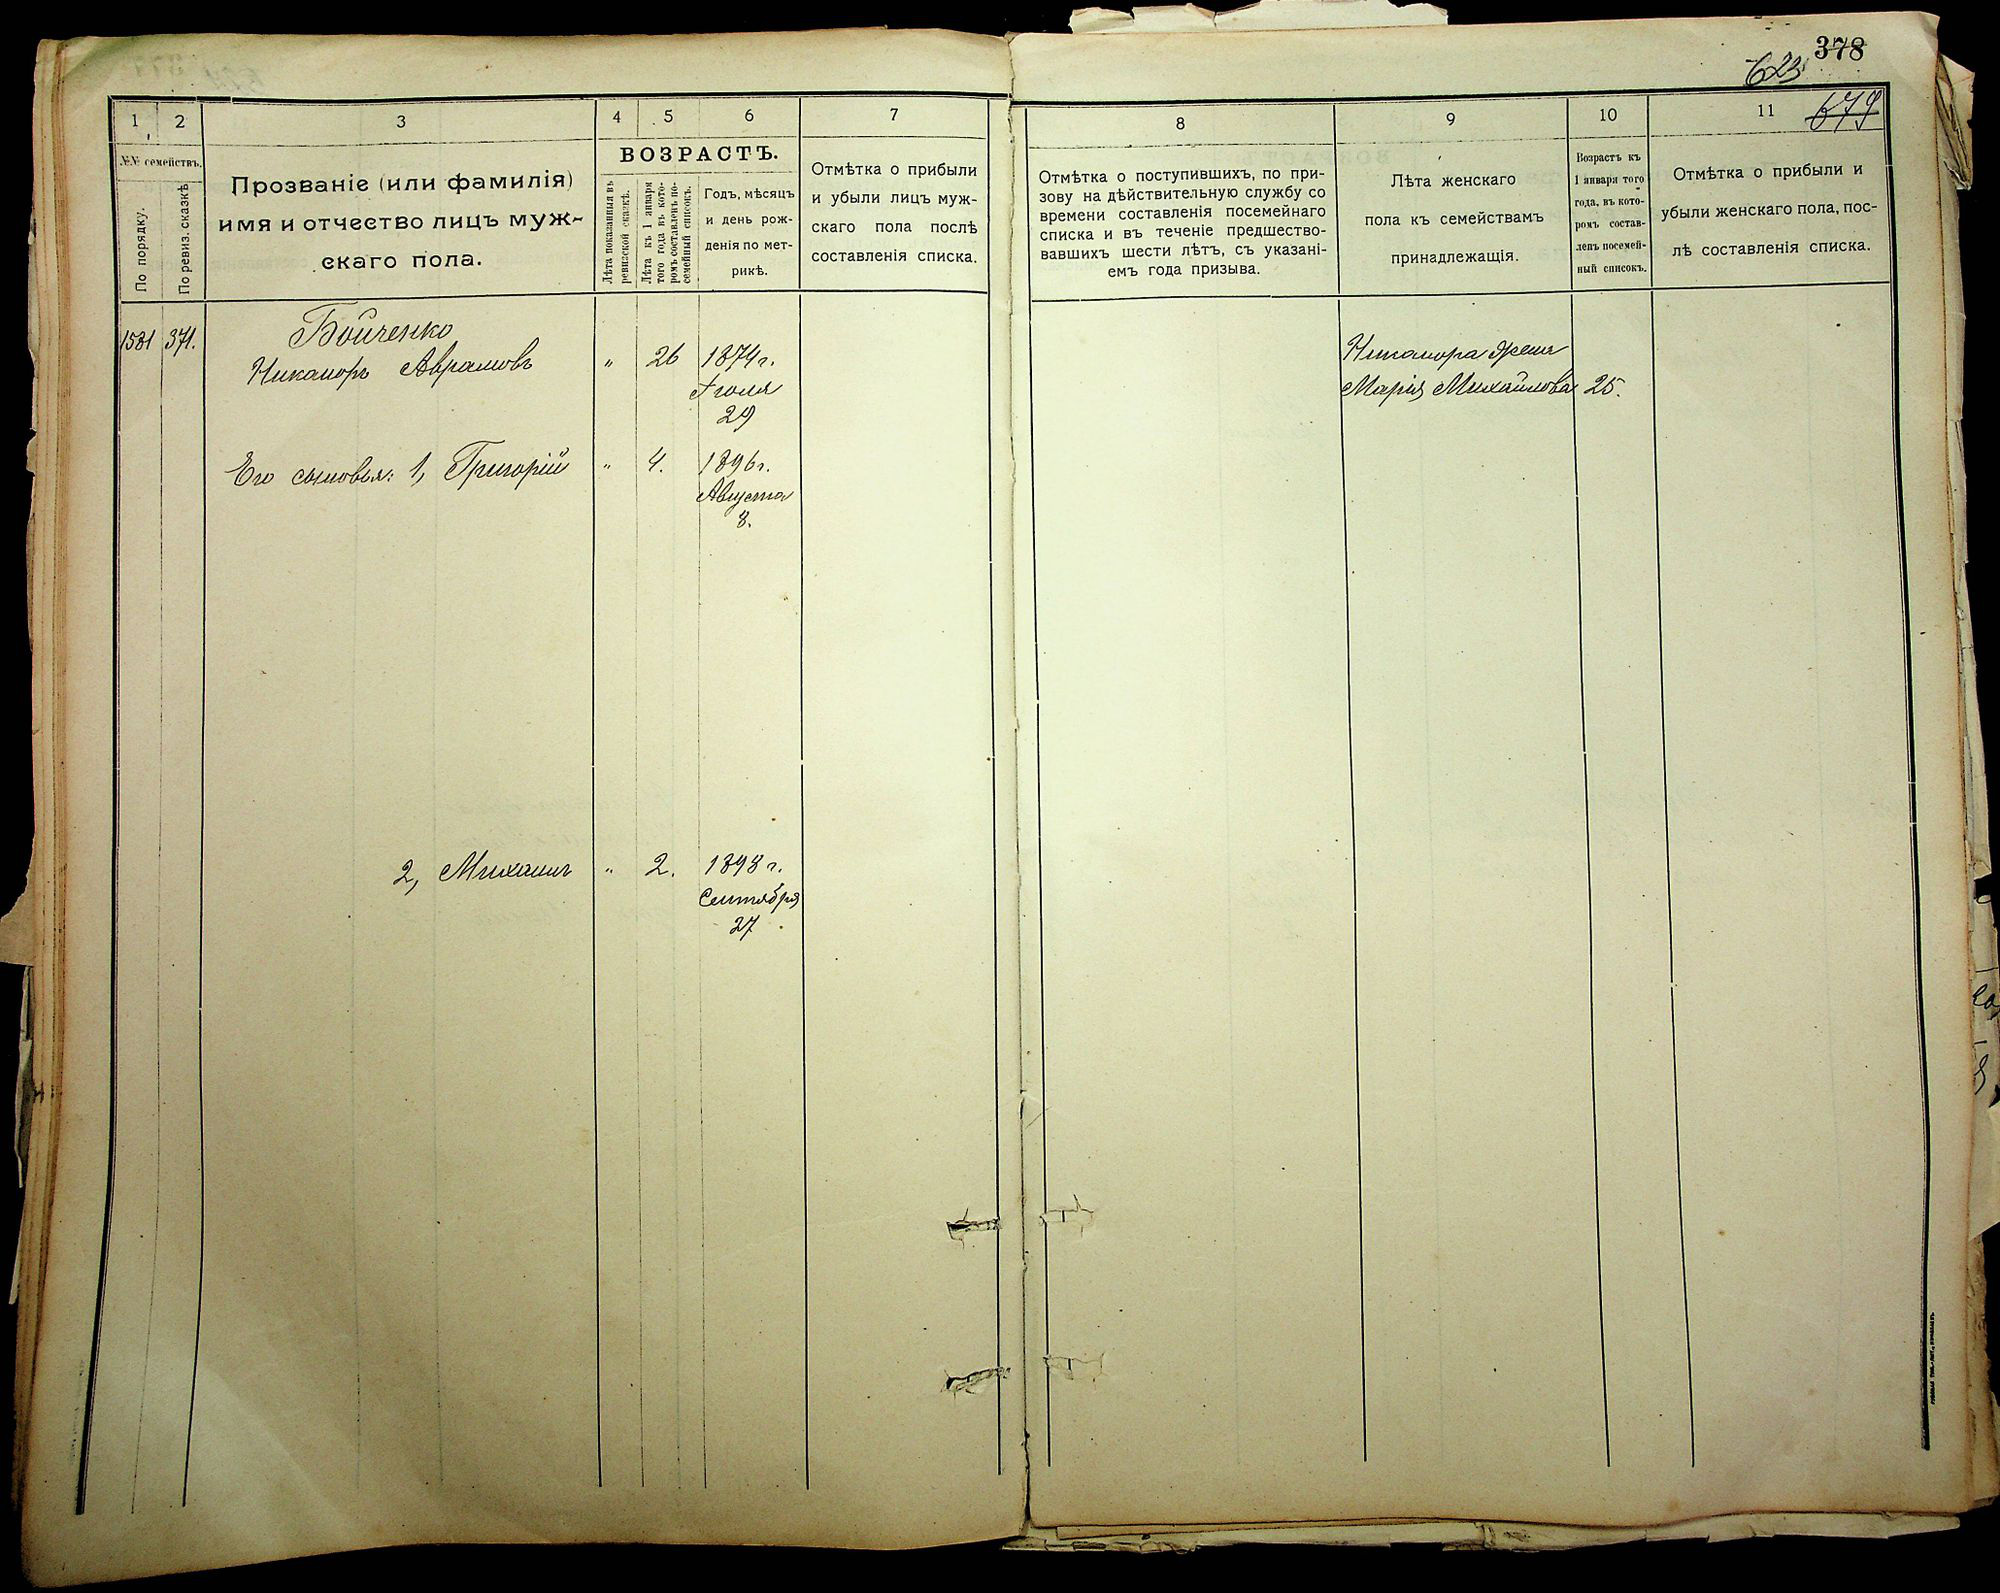 378
623
679
1
2
3
4
5
6
7
8
9
10
11
№№ семействъ.
По порядку.
По ревиз. сказкѣ
Прозваніе (или фамилія)
имя и отчество лицъ муж-
скаго пола.
ВОЗРАСТЪ.
Лѣта показанныя въ
ревизской сказкѣ.
Лѣта къ 1 января
того года въ кото-
ромъ составленъ по-
семейный списокъ.
Годъ, мѣсяцъ
и день рож-
денія по мет-
рикѣ.
Отмѣтка о прибыли
и убыли лицъ муж-
скаго пола послѣ
составленія списка.
Отмѣтка о поступившихъ, по при-
зову на дѣйствительную службу со
времени составленія посемейнаго
списка и въ теченіе предшество-
вавшихъ шести лѣтъ, съ указані-
емъ года призыва.
Лѣта женскаго
пола къ семействамъ
принадлежащія.
Возрастъ къ
1 января того
года, въ кото-
ромъ состав-
ленъ посемей-
ный списокъ.
Отмѣтка о прибыли и
убыли женскаго пола, пос-
лѣ составленія списка.
1581 371.
Бойченко
Никаноръ Аврамовъ " 26 1874 г.
Іюля
29
Никанора жена
Марія Михайлова 25.
Его сыновья: 1, Григорій " 4. 1896 г.
Августа
8.
2, Михаилъ " 2. 1898 г.
Сентября
27